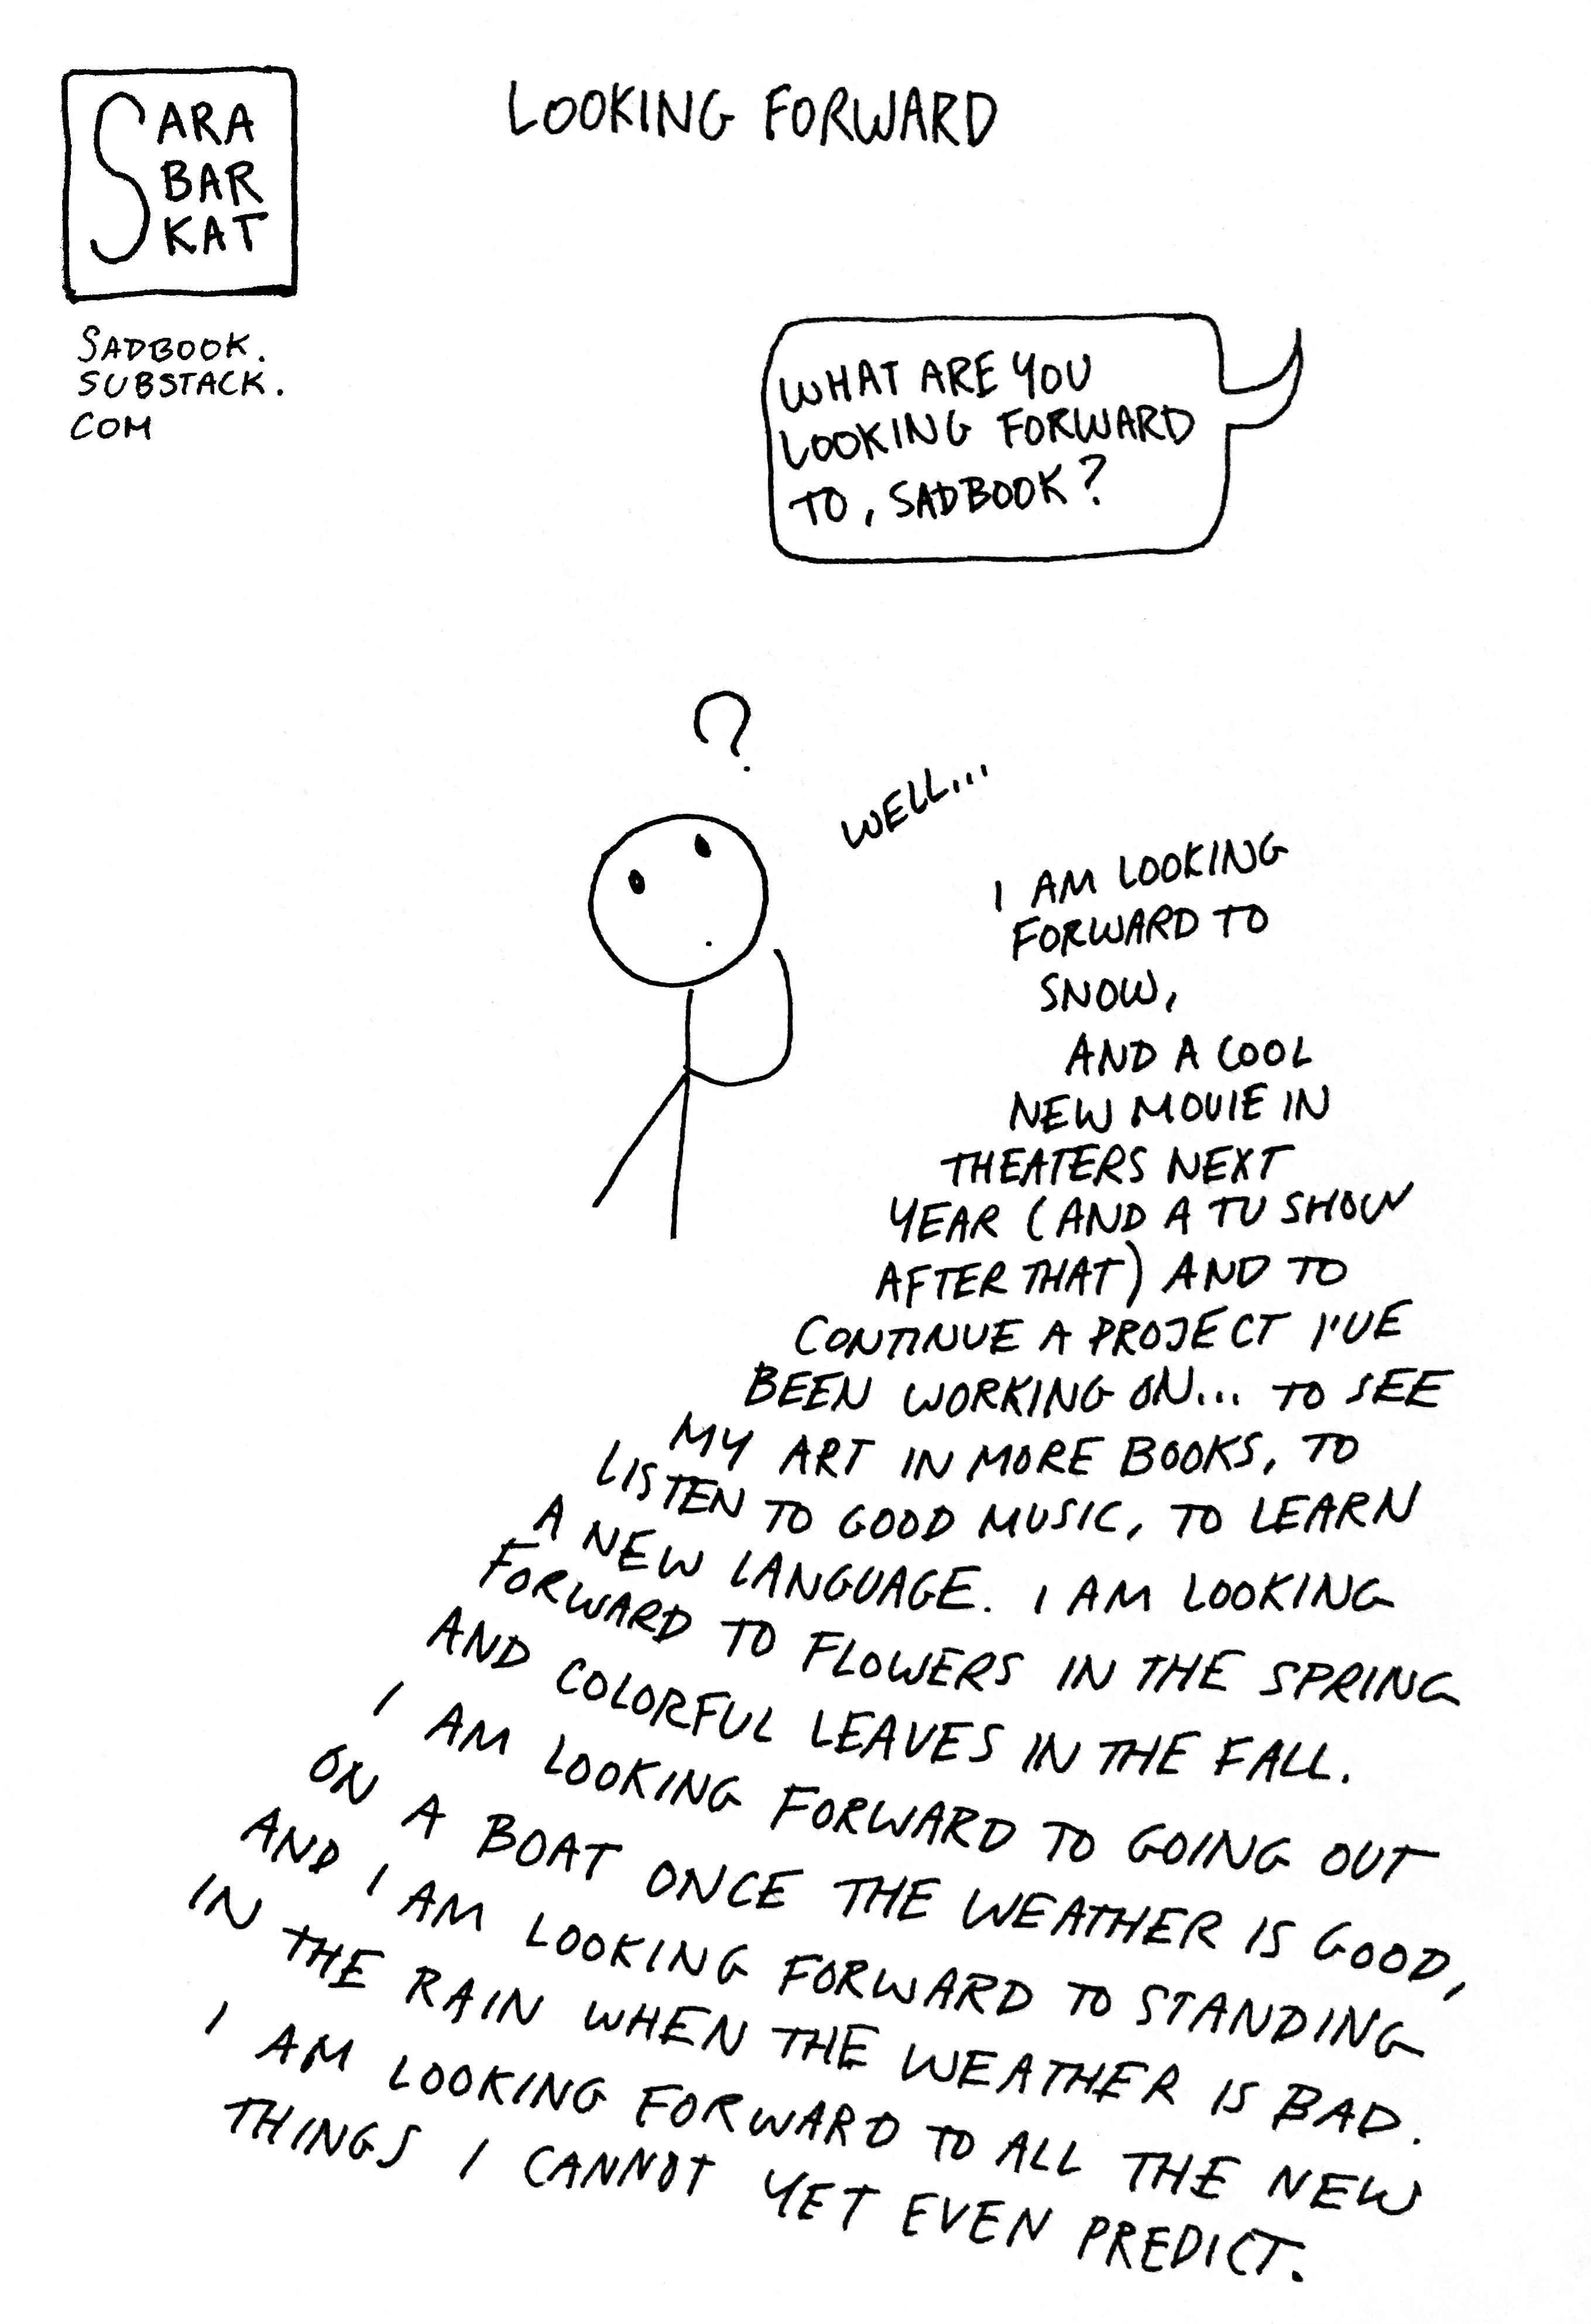 SARA
BAR
KAT
SADBOOK.
SUBSTACK.
COM
LOOKING FORWARD
WHAT ARE YOU
LOOKING FORWARD
TO, SADBOOK?
?
WELL...
I AM LOOKING
FORWARD TO
SNOW,
AND A COOL
NEW MOVIE IN
THEATERS NEXT
YEAR (AND A TV SHOW
AFTER THAT) AND TO
CONTINUE A PROJECT I'VE
BEEN WORKING ON... TO SEE
MY ART IN MORE BOOKS, TO
LISTEN TO GOOD MUSIC, TO LEARN
A NEW LANGUAGE. I AM LOOKING
FORWARD TO FLOWERS IN THE SPRING
AND COLORFUL LEAVES IN THE FALL.
I AM LOOKING FORWARD TO GOING OUT
ON A BOAT ONCE THE WEATHER IS GOOD,
AND I AM LOOKING FORWARD TO STANDING
IN THE RAIN WHEN THE WEATHER IS BAD.
I AM LOOKING FORWARD TO ALL THE NEW
THINGS I CANNOT YET EVEN PREDICT.